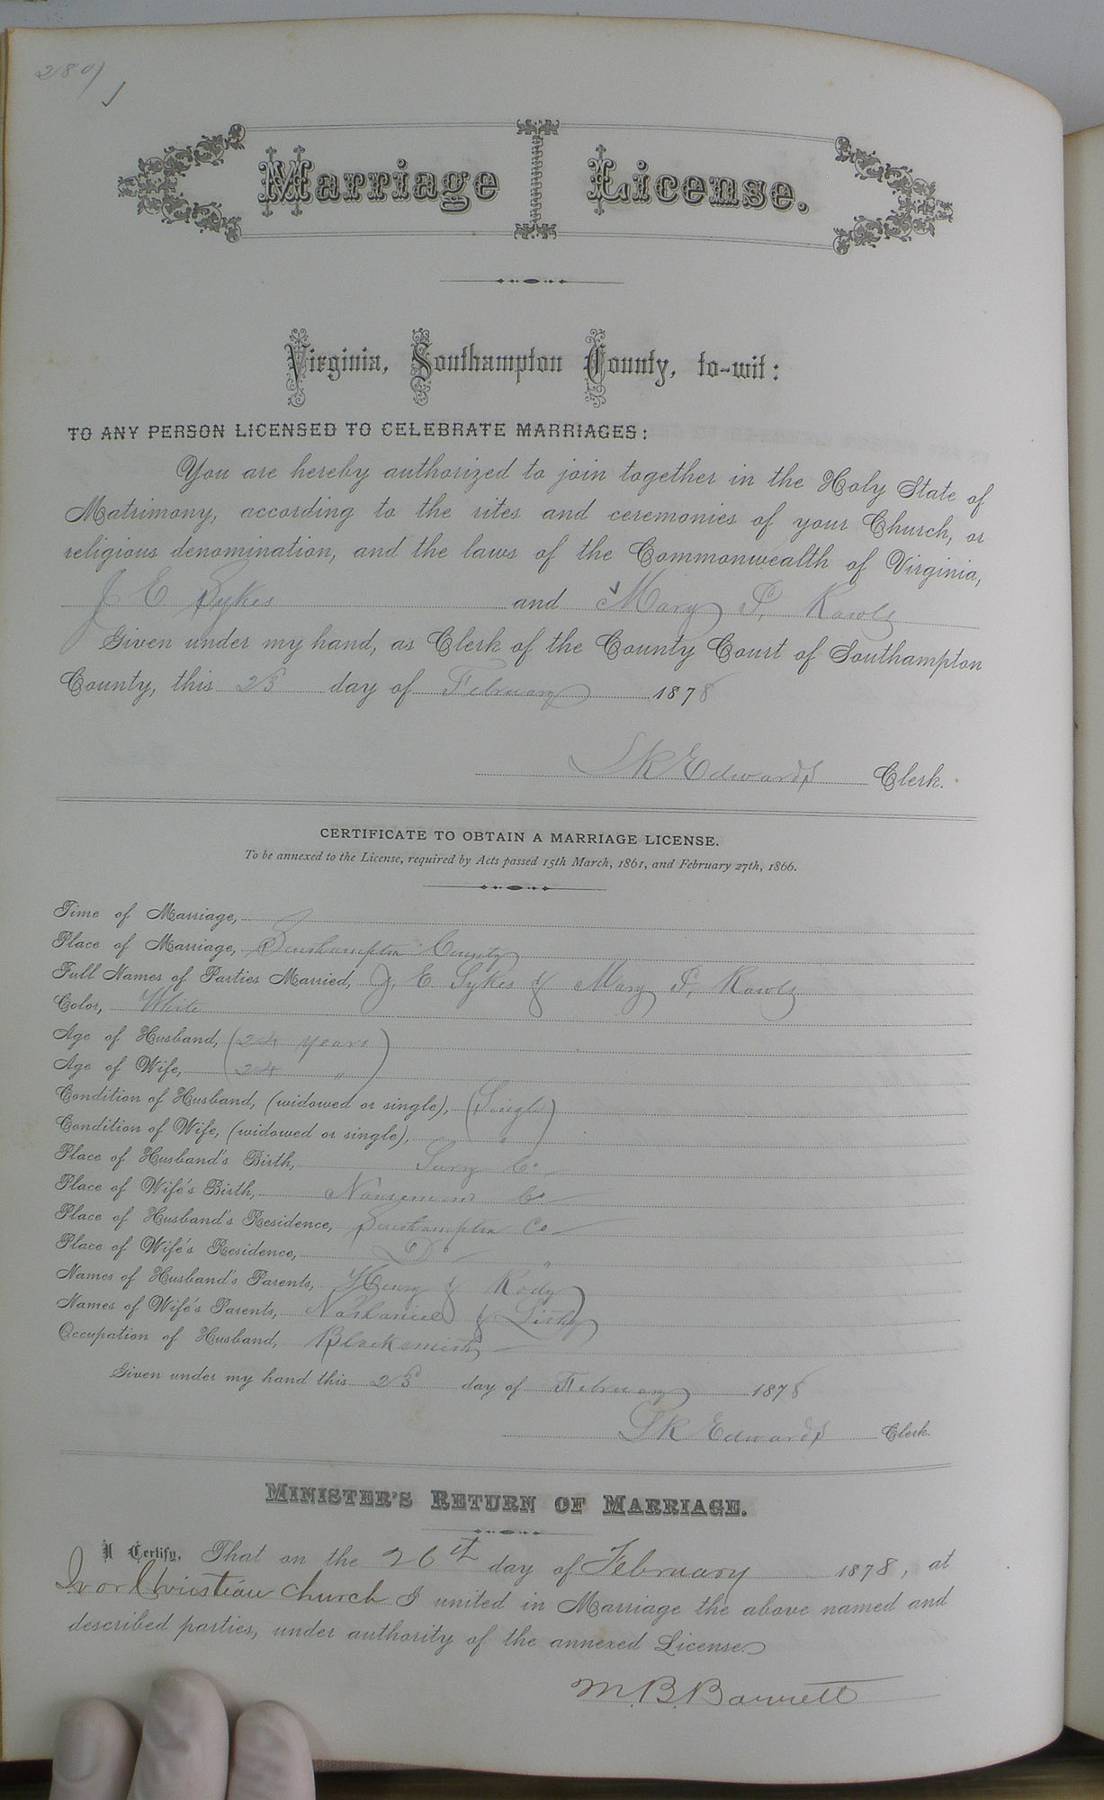 280
Marriage License.
Virginia, Southampton County, to-wit:
TO ANY PERSON LICENSED TO CELEBRATE MARRIAGES:
You are hereby authorized to join together in the Holy State of
Matrimony, according to the rites and ceremonies of your Church, or
religious denomination, and the laws of the Commonwealth of Virginia,
J E Sykes and Mary S. Rawls
Given under my hand, as Clerk of the County Court of Southampton
County, this 25 day of February 1878
L R Edwards Clerk.
CERTIFICATE TO OBTAIN A MARRIAGE LICENSE.
To be annexed to the License, required by Acts passed 15th March, 1861, and February 27th, 1866.
Time of Marriage,
Place of Marriage, Southampton County
Full Names of Parties Married, J. E Sykes & Mary S. Rawls
Color, White
Age of Husband, (24 years)
Age of Wife, (24 ")
Condition of Husband, (widowed or single), (Single)
Condition of Wife, (widowed or single), "
Place of Husband's Birth, Surry Co
Place of Wife's Birth, Nansemond Co
Place of Husband's Residence, Southampton Co
Place of Wife's Residence, Do "
Names of Husband's Parents, Henry &
Names of Wife's Parents, Nathaniel &
Occupation of Husband, Blacksmith
Given under my hand this 25 day of February 1878
L R Edwards Clerk.
MINISTER'S RETURN OF MARRIAGE.
I Certify, That on the 26th day of February 1878, at
Ivor Christian Church I united in Marriage the above named and
described parties, under authority of the annexed License.
M. B. Barrett